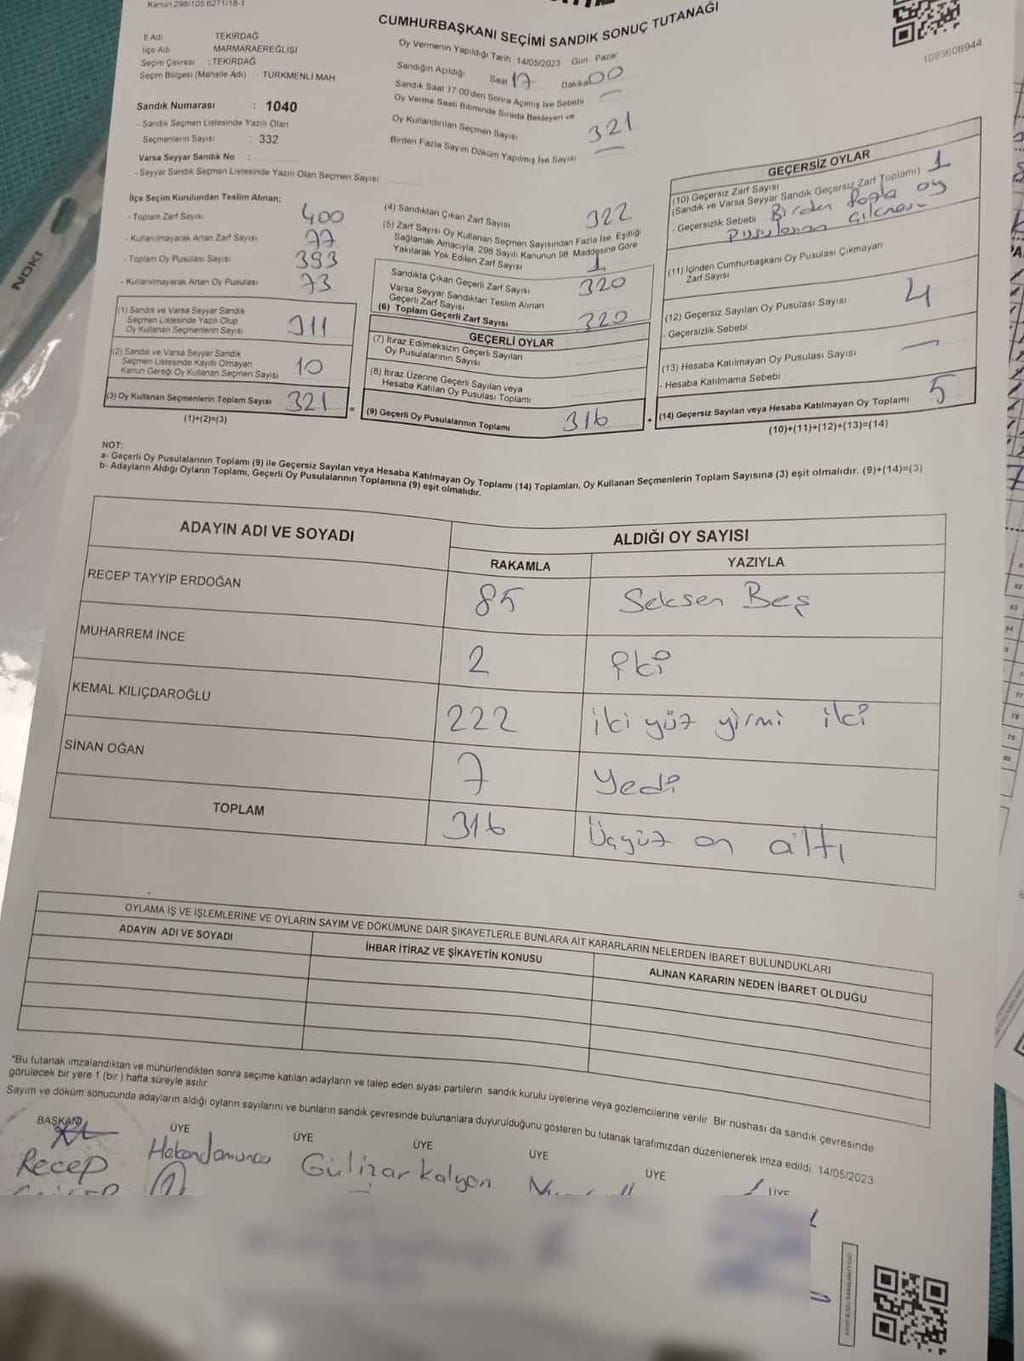 Kanun 298/105 6271/18-1
CUMHURBAŞKANI SEÇİMİ SANDIK SONUÇ TUTANAĞI
1093608944
İl Adı TEKİRDAĞ
İlçe Adı MARMARAEREĞLİSİ
Seçim Çevresi : TEKİRDAĞ
Seçim Bölgesi (Mahalle Adı) TÜRKMENLİ MAH
Sandık Numarası : 1040
- Sandık Seçmen Listesinde Yazılı Olan
Seçmenlerin Sayısı : 332
Varsa Seyyar Sandık No :
- Seyyar Sandık Seçmen Listesinde Yazılı Olan Seçmen Sayısı
Oy Vermenin Yapıldığı Tarih 14/05/2023 Gün Pazar
Sandığın Açıldığı Saat 17 Dakika 00
Sandık Saat 17:00'den Sonra Açılmış İse Sebebi
Oy Verme Saati Bitiminde Sırada Bekleyen ve
Oy Kullandırılan Seçmen Sayısı 321
Birden Fazla Sayım Döküm Yapılmış İse Sayısı
İlçe Seçim Kurulundan Teslim Alınan;
- Toplam Zarf Sayısı 400
- Kullanılmayarak Artan Zarf Sayısı 77
- Toplam Oy Pusulası Sayısı 393
- Kullanılmayarak Artan Oy Pusulası 73
(1) Sandık ve Varsa Seyyar Sandık
Seçmen Listesinde Yazılı Olup
Oy Kullanan Seçmenlerin Sayısı 311
(2) Sandık ve Varsa Seyyar Sandık
Seçmen Listesinde Kayıtlı Olmayan
Kanun Gereği Oy Kullanan Seçmen Sayısı 10
(3) Oy Kullanan Seçmenlerin Toplam Sayısı 321
(1)+(2)=(3)
(4) Sandıktan Çıkan Zarf Sayısı 322
(5) Zarf Sayısı Oy Kullanan Seçmen Sayısından Fazla İse, Eşitliği
Sağlamak Amacıyla, 298 Sayılı Kanunun 98. Maddesine Göre
Yakılarak Yok Edilen Zarf Sayısı 1
Sandıkta Çıkan Geçerli Zarf Sayısı 320
Varsa Seyyar Sandıktan Teslim Alınan
Geçerli Zarf Sayısı
(6) Toplam Geçerli Zarf Sayısı 320
GEÇERLİ OYLAR
(7) İtiraz Edilmeksizin Geçerli Sayılan
Oy Pusulalarının Sayısı
(8) İtiraz Üzerine Geçerli Sayılan veya
Hesaba Katılan Oy Pusulası Toplamı
= (9) Geçerli Oy Pusulalarının Toplamı 316
GEÇERSİZ OYLAR
(10) Geçersiz Zarf Sayısı 1
(Sandık ve Varsa Seyyar Sandık Geçersiz Zarf Toplamı)
- Geçersizlik Sebebi Birden fazla oy
pusulasının çıkması
(11) İçinden Cumhurbaşkanı Oy Pusulası Çıkmayan
Zarf Sayısı
(12) Geçersiz Sayılan Oy Pusulası Sayısı 4
- Geçersizlik Sebebi
(13) Hesaba Katılmayan Oy Pusulası Sayısı
- Hesaba Katılmama Sebebi
+ (14) Geçersiz Sayılan veya Hesaba Katılmayan Oy Toplamı 5
(10)+(11)+(12)+(13)=(14)
NOT:
a- Geçerli Oy Pusulalarının Toplamı (9) ile Geçersiz Sayılan veya Hesaba Katılmayan Oy Toplamı (14) Toplamları, Oy Kullanan Seçmenlerin Toplam Sayısına (3) eşit olmalıdır. (9)+(14)=(3)
b- Adayların Aldığı Oyların Toplamı, Geçerli Oy Pusulalarının Toplamına (9) eşit olmalıdır.
ADAYIN ADI VE SOYADI ALDIĞI OY SAYISI
RAKAMLA YAZIYLA
RECEP TAYYİP ERDOĞAN 85 Seksen Beş
MUHARREM İNCE 2 İki
KEMAL KILIÇDAROĞLU 222 iki yüz yirmi iki
SİNAN OĞAN 7 Yedi
TOPLAM 316 Üçyüz on altı
OYLAMA İŞ VE İŞLEMLERİNE VE OYLARIN SAYIM VE DÖKÜMÜNE DAİR ŞİKAYETLERLE BUNLARA AİT KARARLARIN NELERDEN İBARET BULUNDUKLARI
ADAYIN ADI VE SOYADI İHBAR İTİRAZ VE ŞİKAYETİN KONUSU ALINAN KARARIN NEDEN İBARET OLDUĞU
*Bu tutanak imzalandıktan ve mühürlendikten sonra seçime katılan adayların ve talep eden siyasi partilerin sandık kurulu üyelerine veya gözlemcilerine verilir. Bir nüshası da sandık çevresinde
görülecek bir yere 1 (bir) hafta süreyle asılır
Sayım ve döküm sonucunda adayların aldığı oyların sayılarını ve bunların sandık çevresinde bulunanlara duyurulduğunu gösteren bu tutanak tarafımızdan düzenlenerek imza edildi. 14/05/2023
BAŞKAN ÜYE ÜYE ÜYE ÜYE ÜYE ÜYE
Recep
Gülizar Kalyon
NOKI